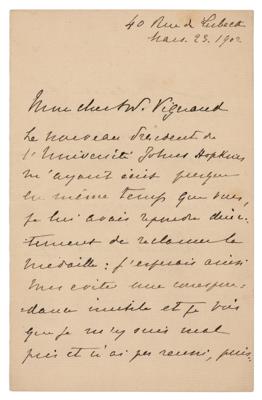 40 Rue de Lubeck
Mars. 23. 1902
Mon cher Mr. Vignaud
Le nouveau Président de
l'Université Johns Hopkins
m'ayant écrit presque
en même temps que vous,
je lui avais répondu direc-
tement de réclamer la
médaille : j'espérais ainsi
vous éviter une correspon-
dance inutile et je vois
que je m'y suis mal
pris et n'ai pas réussi, puis-